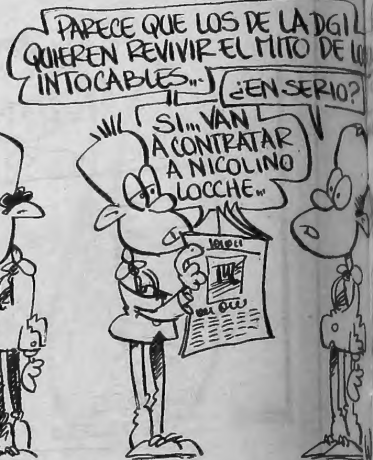 PARECE QUE LOS DE LA DGI
QUIEREN REVIVIR EL MITO DE
INTOCABLES...
¿EN SERIO?
SI... VAN
A CONTRATAR
A NICOLINO
LOCCHE...